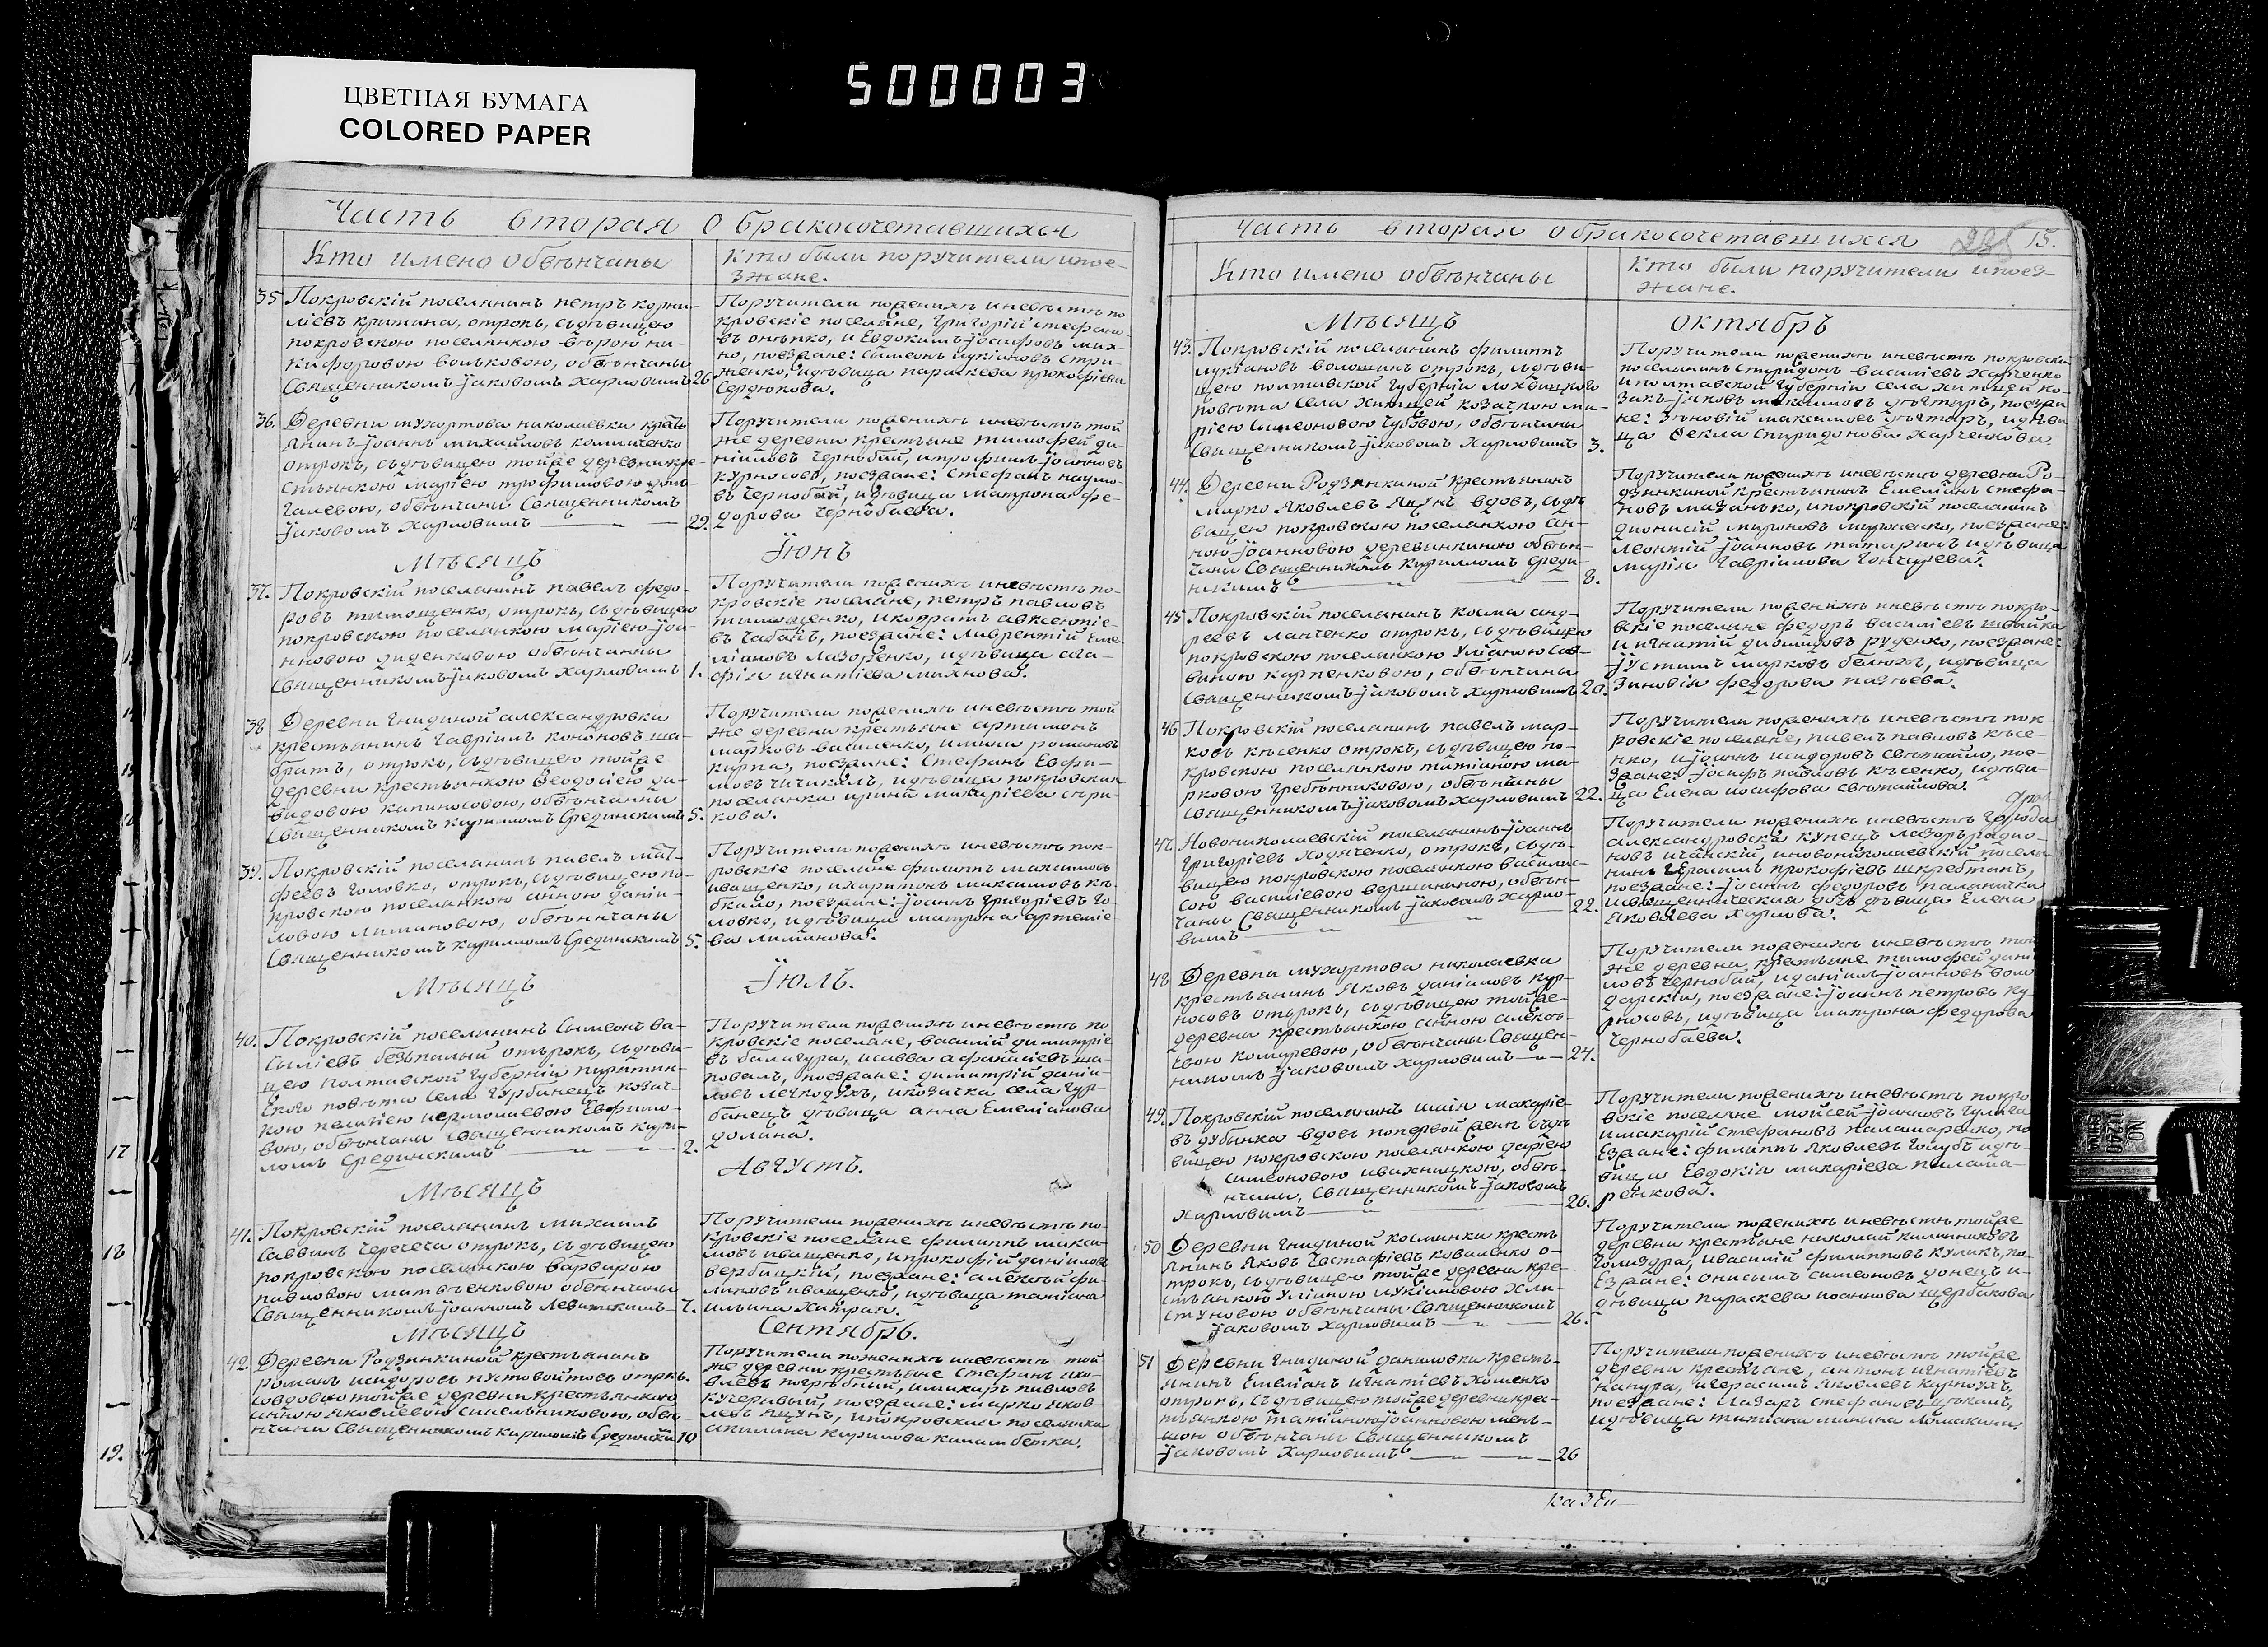 ЦВЕТНАЯ БУМАГА
COLORED PAPER
500003
Часть вторая о бракосочетавшихся
Кто имено обвѣнчаны
Кто были поручители ипое-
зжане.
35 Покровскій поселянинъ петръ корни-
ліевъ критина, отрокъ, съдѣвицею
покровскою поселянкою вѣрою ни-
кифоровою вольковою, обвѣнчаны
Священникомъ Іаковомъ Харловимъ 26
Поручители поженихѣ иневѣстѣ по
кровскіе поселяне, Григорій стефано
въ онѣпко, и Евдокимъ Іосифовъ мих-
но, поезжане: Симеонъ лукіановъ стри-
женко, идѣвица параскева прокофіева
Сердюкова.
36. Деревни мухортова николаевки крѣст
янинъ Іоаннъ михайловъ
отрокъ, съдѣвицею тойже деревни кре-
стьянкою маріею трофимовою
галевою, обвѣнчаны Священникомъ
Іаковомъ Харловимъ 29.
Поручители поженихѣ иневѣстѣ той
же деревни крестьяне тимофей да-
ніиловъ Чернобай, итрофимъ Іоанновъ
курносовъ, поезжане: Стефанъ наумо-
въ Чернобай, идѣвица матрона фе-
дорова Чернобаева.
Мѣсяцъ Іюнь
37. Покровскій поселянинъ павелъ федо-
ровъ тимощенко, отрокъ, съдѣвицею
покровскою поселянкою маріею Іоа-
нновою диденковою обвѣнчанны
Священникомъ Іаковомъ Харловимъ 1.
Поручители поженихѣ иневѣстѣ по-
кровскіе поселяне, петръ павловъ
тимощенко, икондратъ авксентіе-
въ Чабанъ, поезжане: Лаврентій Еме-
ліановъ Лазоренко, идѣвица
игнатіева михнова.
38 Деревни Гнидиной александровки
крестьянинъ Гавріилъ кононовъ ша-
братъ, отрокъ, съдѣвицею тойже
деревни крестьянкою Ѳеодосіею да-
видовою капиносовою, обвѣнчанны
Священникомъ кирилломъ Срединскимъ 5.
Поручители поженихѣ иневѣстѣ той
же деревни крестьяне артимонъ
марковъ василенко, романовъ
поезжане: Стефанъ Евфи-
мовъ Чичикалъ, идѣвица покровская
поселянка ирина макаріева
кова.
39. Покровскій поселянинъ павелъ мат-
феевъ Головко, отрокъ, съдѣвицею по-
кровскою поселянкою анною даніи-
ловою лимановою, обвѣнчаны
Священникомъ кирилломъ Срединскимъ 5.
Поручители поженихѣ иневѣстѣ пок-
ровскіе поселяне филиппъ максимовъ
иващенко, ихаритонъ максимовъ ко-
бкало, поезжане: Іоаннъ Григоріевъ Го-
ловко, идѣвица матрона артеміе
ва лиманова.
Мѣсяцъ Іюль.
40. Покровскій поселянинъ Симеонъ ва-
силіевъ безпалый отрокъ, съдѣви-
цею полтавской Губерніи пирятин-
скаго повѣта села Гурбинецъ козач-
кою пелагіею Ермолаевою Евфимо-
вою, обвѣнчаны Священникомъ кири-
ломъ Срединскимъ 2.
Поручители поженихѣ иневѣстѣ по
кровскіе поселяне, василій димитріе
въ балигура, исавва афанасіевъ ша-
повалъ, поезжане: димитрій даніи-
ловъ легкодухъ, икозачка села Гур-
бинецъ дѣвица анна Емеліанова
долина.
Мѣсяцъ Августъ.
41. Покровскій поселянинъ михаилъ
саввинъ Чересеча отрокъ, съдѣвицею
покровскою поселянкою варварою
павловою матвѣенковою обвѣнчаны
Священникомъ Іоанномъ Левитскимъ 7.
Поручители поженихѣ иневѣстѣ по-
кровскіе поселяне филиппъ макси-
мовъ иващенко, ипрокофій даніиловъ
вербицкій, поезжане: алексѣй фи-
липовъ иващенко, идѣвица татіана
ильина Хитрая.
Мѣсяцъ Сентябрь.
42. Деревни Родзянкиной крестьянинъ
романъ исидоровъ пустовойтовъ отркъ.
совдовою тойже деревни крестьянкою
анною яковлевою синельниковою, обвѣ
нчаны Священникомъ кириломъ Срединским 10
Поручители поженихѣ иневѣстѣ той
же деревни крестьяне Стефанъ яко-
влевъ погрѣбный, имакаръ павловъ
кучерявый, поезжане: марко яков-
левъ яцунъ, ипокровская поселянка
акилина кирилова калашбетка.
Часть вторая о бракосочетавшихся 15.
Кто имено обвѣнчаны
Кто были поручители ипоез-
жане.
Мѣсяцъ октябрь
43. Покровскій поселянинъ филиппъ
лукіановъ волошинъ отрокъ, съдѣви-
цею полтавской Губерніи лохвицкаго
повѣта села житцей козачкою ма-
ріею Симеоновою Губовою, обвѣнчаны
Священникомъ Іаковомъ Харловимъ 3.
Поручители поженихѣ иневѣстѣ покровскій
поселянинъ Спиридонъ василіевъ Харченко
иполтавской Губерніи села житцей ко-
закъ Іаковъ максимовъ дѣгтяръ, поезжа-
не: Зѣновій максимовъ дѣгтяръ, идѣви-
ца Ѳекла Спиридонова Харченкова
44. Деревни Родзянкиной крестьянинъ
марко яковлевъ яцунъ вдовъ, съдѣ
вицею покровскою поселянкою ан-
ною Іоанновою деревянкиною обвѣн-
чаны Священникомъ Кирилломъ Среди-
нскимъ 8.
Поручители поженихѣ иневѣстѣ деревни Ро-
дзянкиной крестьянинъ Емеліанъ стефа-
новъ ипокровскій поселянинъ
дионисій мироновъ мироненко, поезжане:
леонтій Іоанновъ титаринъ идѣвица
марія Гавріилова Гончарева.
45 Покровскій поселянинъ косма анд-
реевъ Ланченко отрокъ, съдѣвицею
покровскою поселянкою уліаною сав-
виною карпенковою, обвѣнчаны
Священникомъ Іаковомъ Харловимъ 20.
Поручители поженихѣ иневѣстѣ покро-
вскіе поселяне федоръ василіевъ
иигнатій діомидовъ руденко, поезжане:
Іустинъ марковъ белюхъ, идѣвица
Зиновія федорова
46 Покровскій поселянинъ павелъ мар-
ковъ кѣсенко отрокъ, съдѣвицею по-
кровскою поселянкою татіаною ма-
рковою Гребѣнниковою, обвѣнчаны
Священникомъ Іаковомъ Харловимъ 22.
Поручители поженихѣ иневѣстѣ пок-
ровскіе поселяне, павелъ павловъ кѣсе-
нко, иІоаннъ исидоровъ свѣтайло, пое-
зжане: Іосифъ павловъ кѣсенко, идѣви-
ца Елена иосифова свѣтайлова.
47. Новониколаевскій поселянинъ Іоаннъ
Григоріевъ Ходяченко, отрокъ, съдѣ-
вицею покровскою поселянкою васили-
сою василіевою вершининою, обвѣн-
чаны Священникомъ Іаковомъ Харло-
вимъ 22.
Поручители поженихѣ иневѣстѣ Города
александровска купецъ лазоръ радио-
новъ иновониколаевскій поселя-
нинъ Герасимъ прокофіевъ шкребтанъ,
поезжане: Іоаннъ федоровъ паланичка
исвященническая дочь дѣвица Елена
Яковлева Харлова.
48 Деревни мухортова николаевка
крестьянинъ Яковъ даніиловъ кур-
носовъ отрокъ, съдѣвицею тойже-
деревни крестьянкою анною алексѣ-
евою комаревою, обвѣнчаны Священ-
никомъ Іаковомъ Харловимъ 24.
Поручители поженихѣ иневѣстѣ той
же деревни крестьяне тимофей дані
ловъ Чернобай, иданіилъ Іоанновъ боло
дарскій, поезжане: Іоаннъ петровъ ку-
рносовъ, идѣвица матрона федорова
Чернобаева.
49. Покровскій поселянинъ исаія макаріе-
въ дубинка вдовъ попервой женѣ съдѣ
вицею покровскою поселянкою даріею
симеоновою ивахницкою, обвѣ-
нчаны, Священникомъ Іаковомъ
Харловимъ 26.
Поручители поженихѣ иневѣстѣ покро
вскіе поселяне мойсей Іоанновъ
имакарій стефановъ паламаренко, по
езжане: филиппъ яковлевъ Голубъ идѣ-
вица Евдокія макаріева палама-
ренкова.
50 Деревни Гнидиной космынки кресть
янинъ Яковъ Евстафіевъ коваленко о-
трокъ, съдѣвицею тойже деревни кре-
стьянкою уліаною лукіановою Хли-
стуновою обвѣнчаны Священникомъ
Іаковомъ Харловимъ 26.
Поручители поженихѣ иневѣстѣ тойже
деревни крестьяне николай калинниковъ
Голидура, ивасилій филипповъ куликъ, по-
езжане: онисимъ симеоновъ донецъ и-
дѣвица параскева иоаннова щербакова
51 Деревни Гнидиной даниловки кресть-
янинъ Емеліанъ игнатіевъ Хоменко
отрокъ, съдѣвицею тойже деревни крес-
тьянкою татіаною Іоанновою мень-
шою обвѣнчаны Священникомъ
Іаковомъ Харловимъ 26
Поручители поженихѣ иневѣстѣ тойже
деревни крестьяне, антонъ игнатіевъ
канура, игерасимъ Яковлевъ карнаухъ,
поезжане: Лазаръ стефановъ цокалъ,
идѣвица татіана минина
казен
17
18
19.